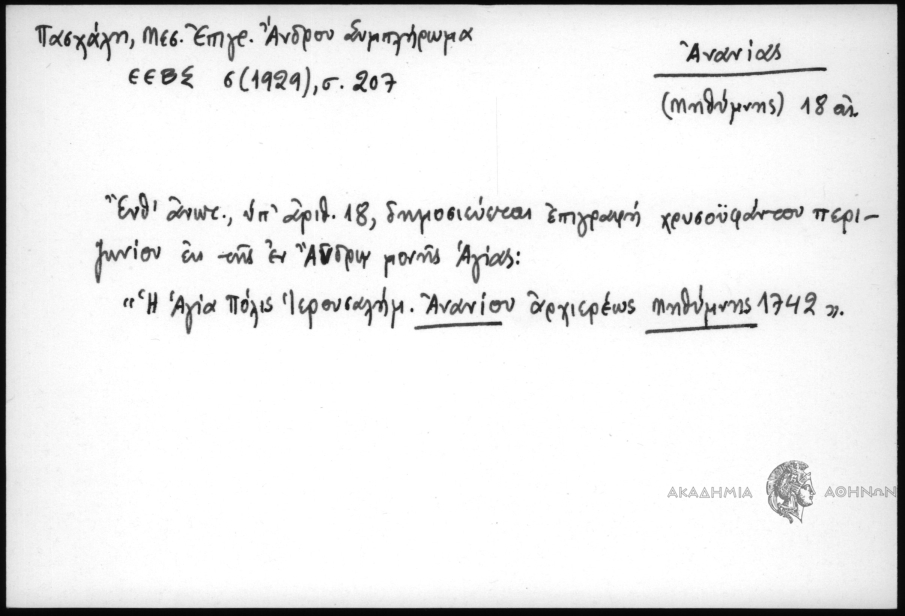 Πασχάλη, Μεσ. Ἐπιγρ. Ἄνδρου Συμπλήρωμα
ΕΕΒΣ 6 (1929), σ. 207
Ἀνανίας
(Μηθύμνης) 18 αἰ.
Ἔνθ' ἀνωτ., ὑπ' ἀριθ. 18, δημοσιεύεται ἐπιγραφή χρυσοϋφάντου περι-
ζωνίου ἐκ τῆς ἐν Ἄνδρῳ μονῆς Ἁγίας:
«Ἡ Ἁγία Πόλις Ἱερουσαλήμ. Ἀνανίου ἀρχιερέως Μηθύμνης 1742».
ΑΚΑΔΗΜΙΑ ΑΘΗΝΩΝ